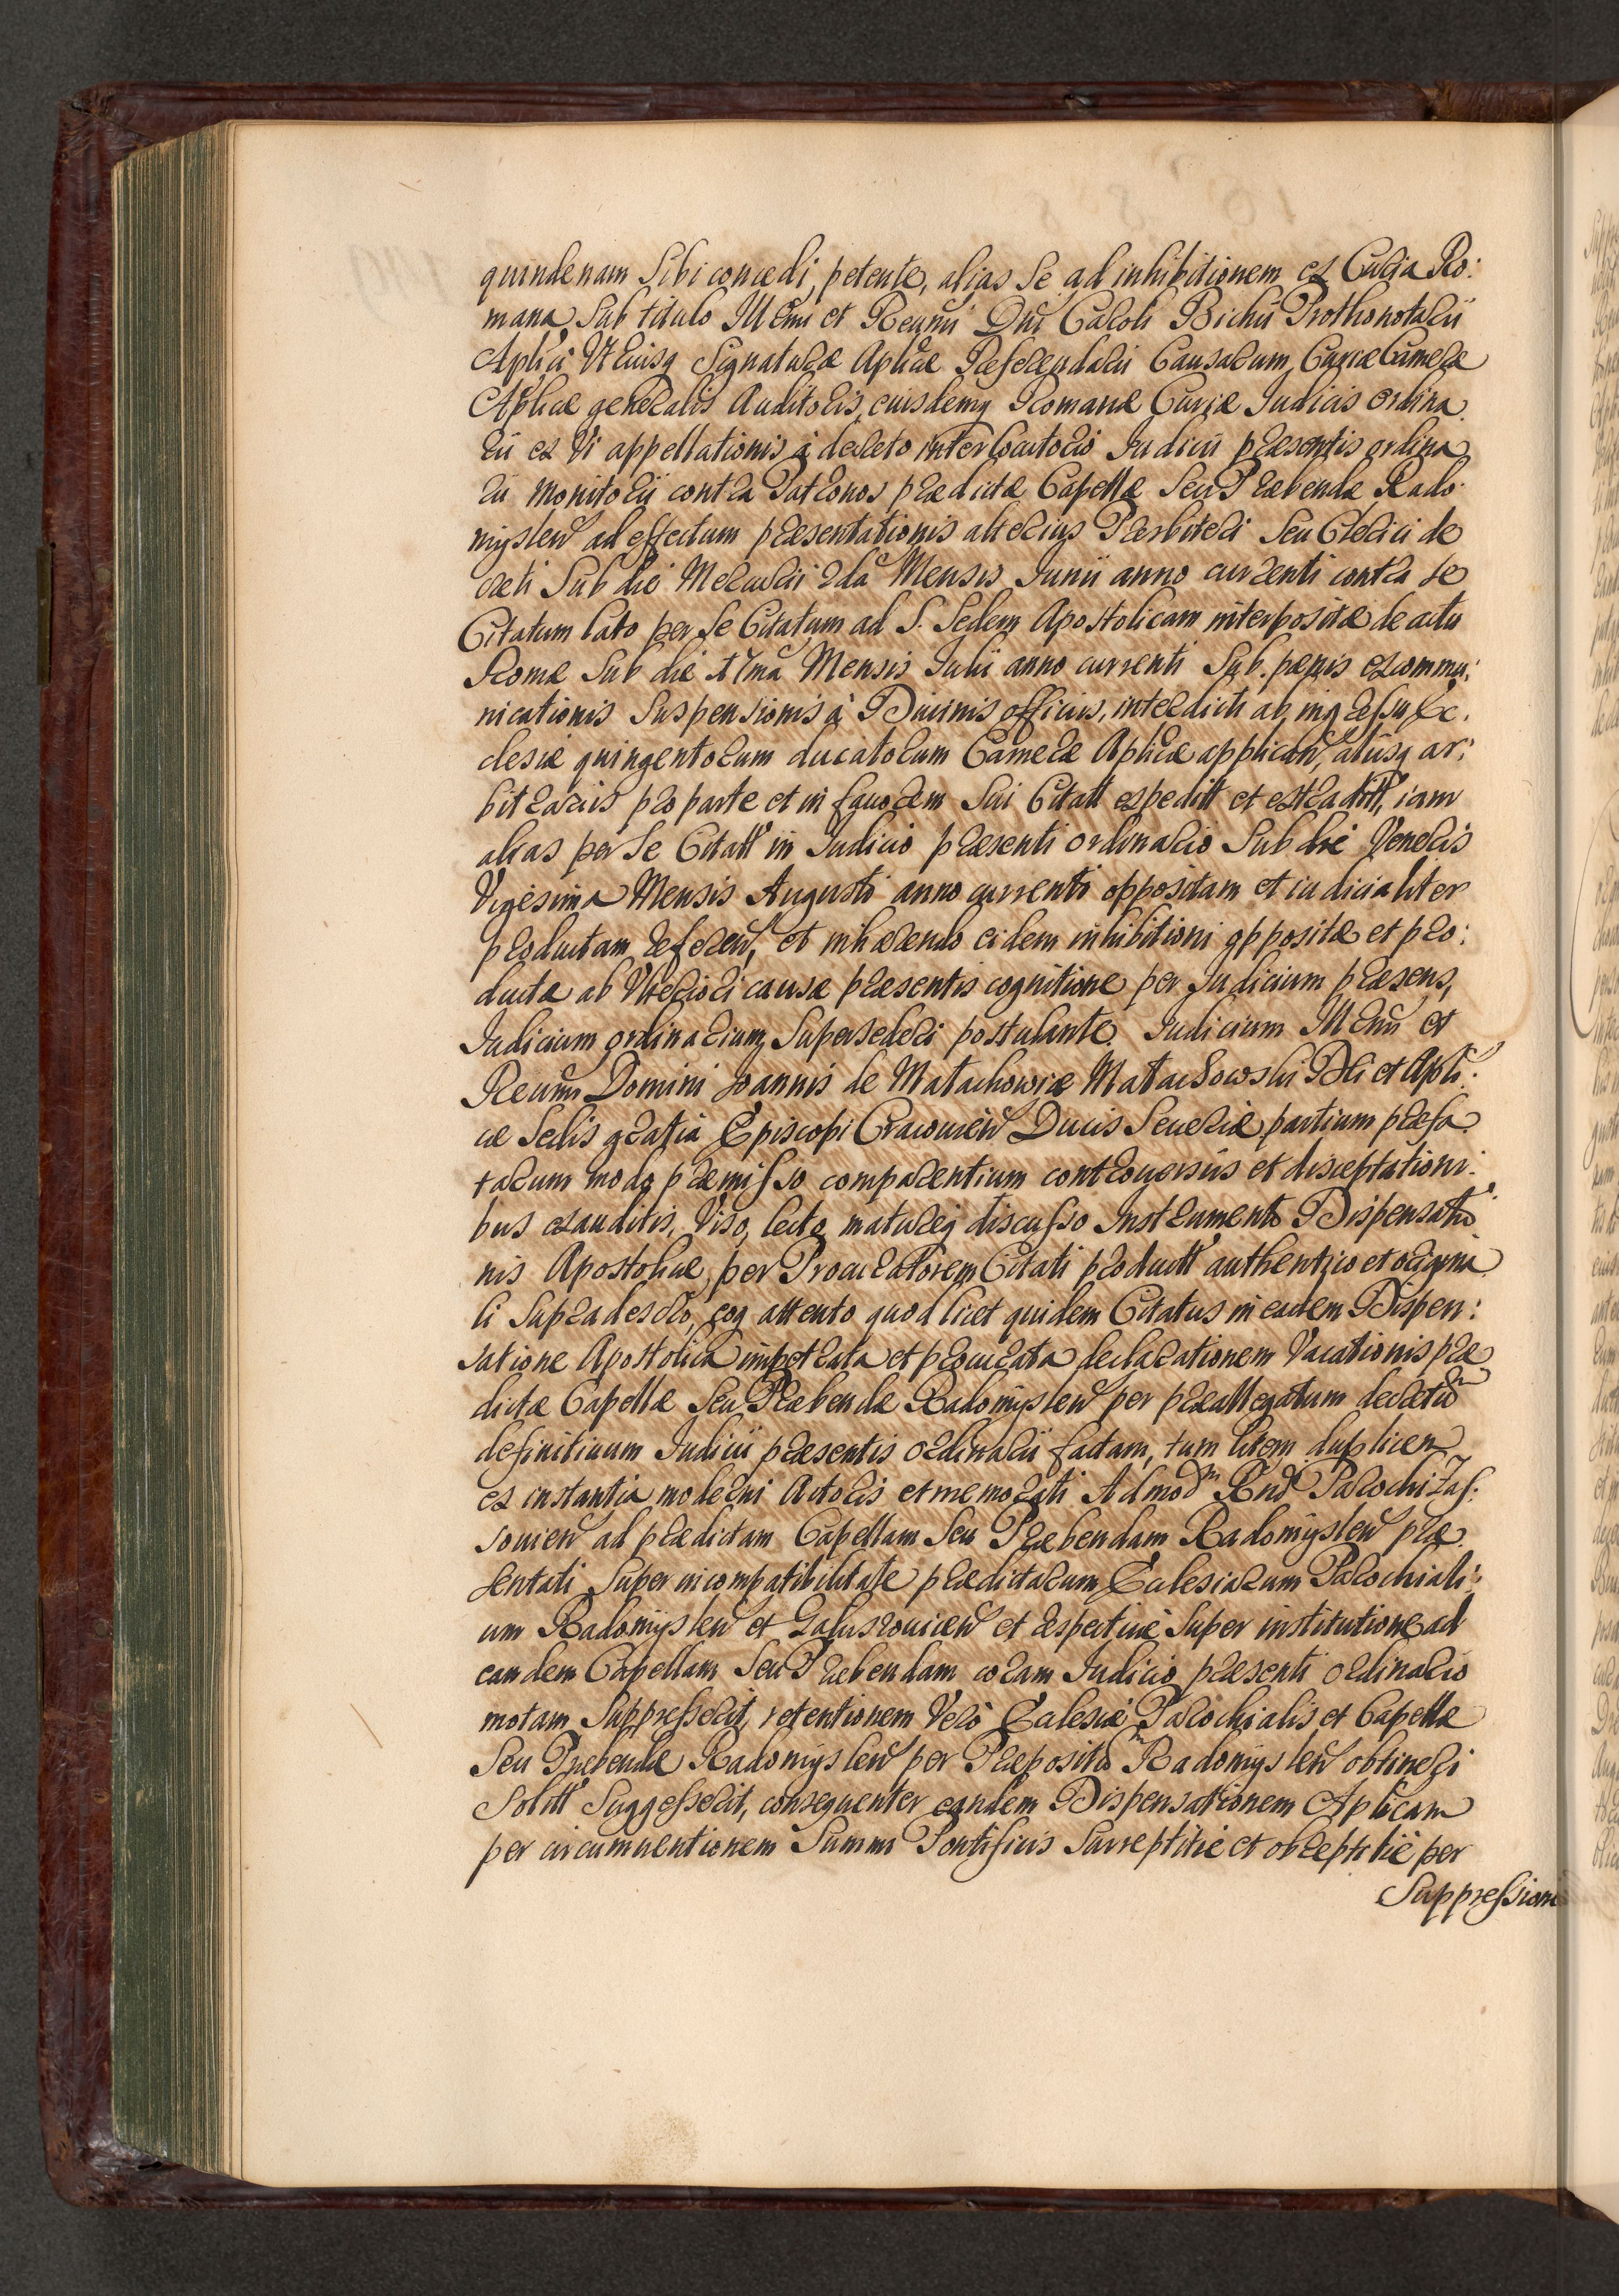 quindenam Sibi concedi, petente, alias Se ad inhibitionem ex Curia Ro:
mana Sub titulo Illmi et Reũmi Dñi Caroli Bichii Prothonotarii
Aplici Utriusq Signaturæ Aplicæ Referendarii Causarum Curiæ Cameræ
Aplicæ generalis Auditoris, eiusdemq Romanæ Curiæ Iudicis ordina
rii ex Vi appellationis à decreto interlocutorio Iudicii præsentis ordina
rii monitorii contra Patronos prædictæ Capellæ Seu Præbendæ Rado:
myslen ad effectum præsentationis alterius Præsbiteri Seu Clerici de
creti Sub die Mercurii 2da Mensis Junii anno currenti contra se
Citatum lato per Se Citatum ad S. Sedem Apostolicam interpositæ de actu
Romæ Sub die Mensis Julii anno currenti Sub pænis excommu:
nicationis Suspensionis à Diuinis officiis, interdicti ab ingressu Ec:
clesiæ quingentorum ducatorum Cameræ Aplicæ applican, aliisq ar:
bitrariis pro parte et in fauorem Sui Citatt expeditt et extraditt, iam
alias per Se Citatt in Iudicio præsenti ordinario Sub die Veneris
Vigesima Mensis Augusti anno currenti oppositam et iudicialiter
productam referen, et inhærendo eidem inhibitioni oppositæ et pro:
ductæ ab Ulteriori causæ præsentis cognitione per Judicium præsens,
Iudicium ordinarium Supersederi postulante. Iudicium Illmi et
Reũmi Domini Joannis de Małachowice Małachowski Dei et Apli:
cæ Sedis gratia Episcopi Cracouien Ducis Seueriæ, partium præfa
tarum modo præmisso comparentium controuersiis et disceptationi:
bus exauditis, Viso, lecto matureq discusso Instrumento Dispensatio
nis Apostolicæ, per Procuratorem Citati productt authentico et origina
li Supradescto, eoq attento quod licet quidem Citatus in eadem Dispen:
satione Apostolica impetrata et procurata declarationem Vacationis præ
dictæ Capellæ Seu Præbendæ Radomyslen per præallegatum decretum
definitiuum Judicii præsentis ordinarii factam, tum litem duplicem
ex instantia moderni Actoris et memorati Admod Rnd Parochi Zas:
souien ad prædictam Capellam Seu Præbendam Radomyslen præ
sentati Super incompatibilitate prædictarum Ecclesiarum Parochiali:
um Radomyslen et et respectiue Super institutione ad
eandem Capellam Seu Præbendam coram Iudicio præsenti ordinario
motam Suppresserit, retentionem Verò Ecclesiæ Parochialis et Capellæ
Seu Præbendæ Radomyslen per Præpositum Radomyslen obtineri
Solitt Suggesserit, consequenter eandem Dispensationem Aplicam
per circumuentionem Summi Pontificis Surreptitiè et obreptitiè per
Suppressione